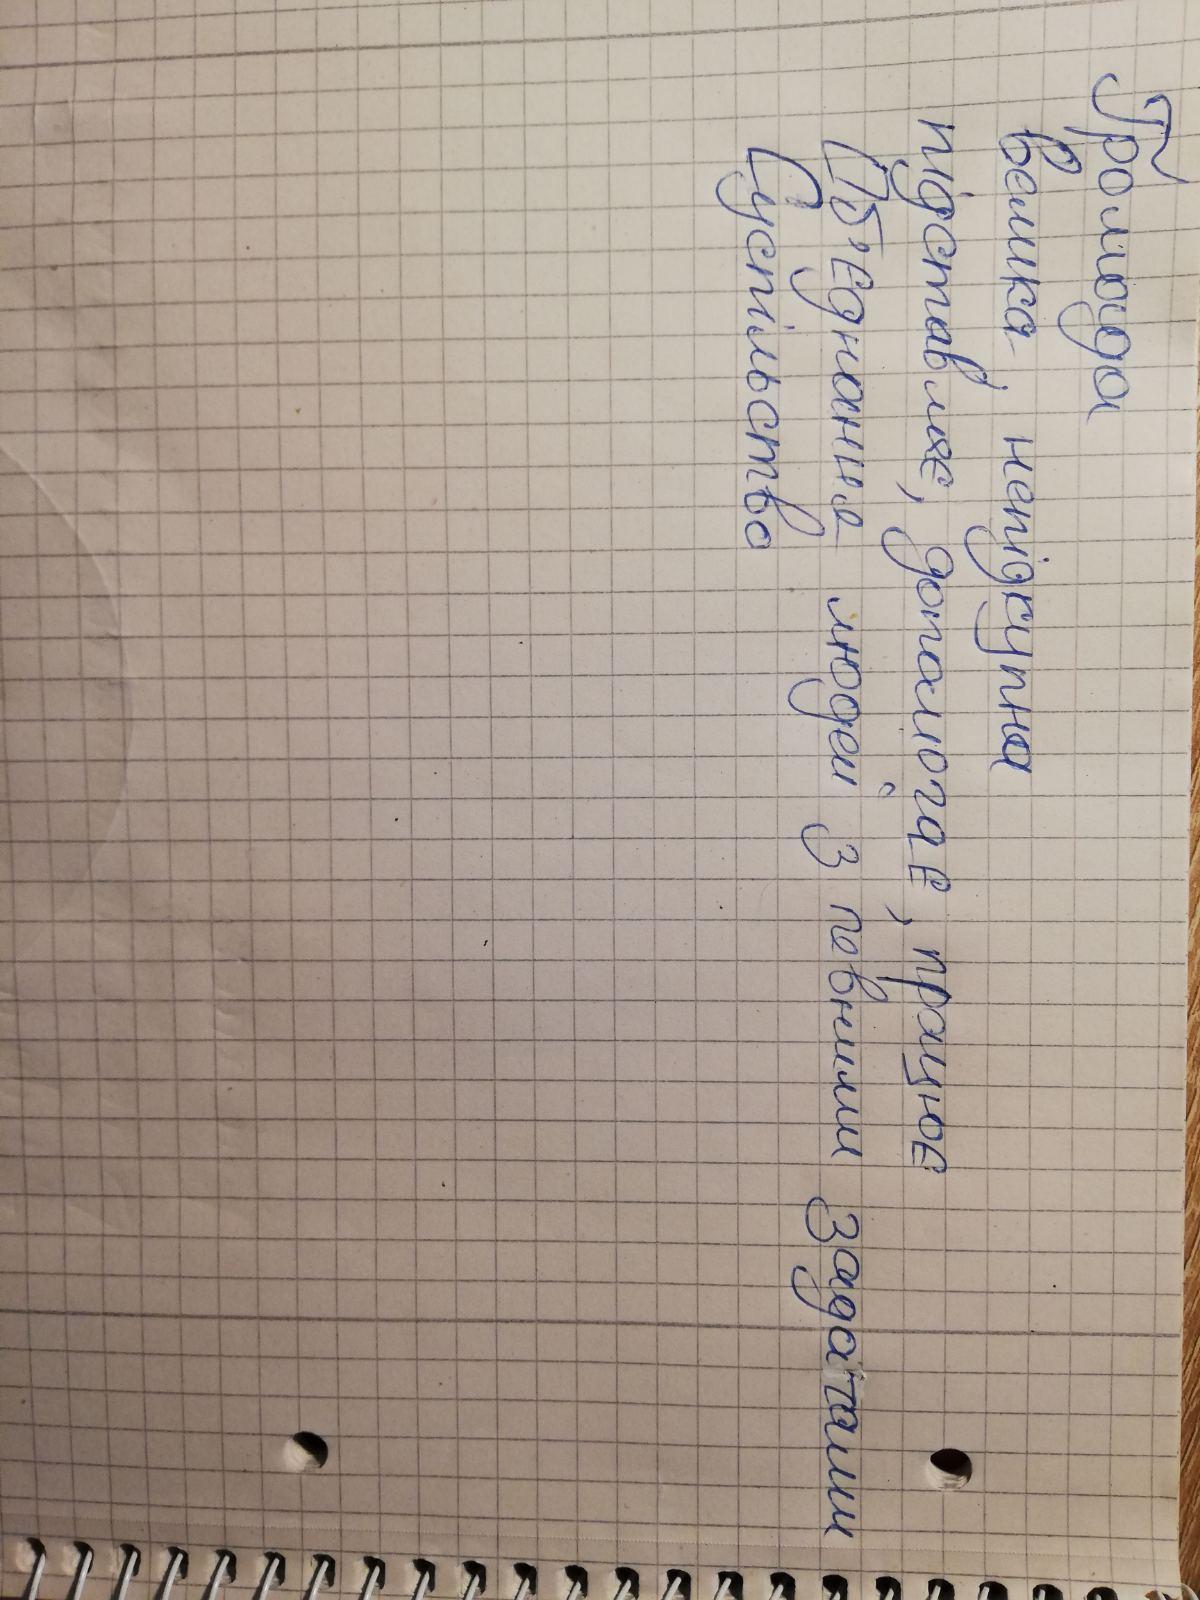 Громада
велика, непідкупна
підставляє, допомогає, працює
Об'єднання людей з певними задачами
Суспільство